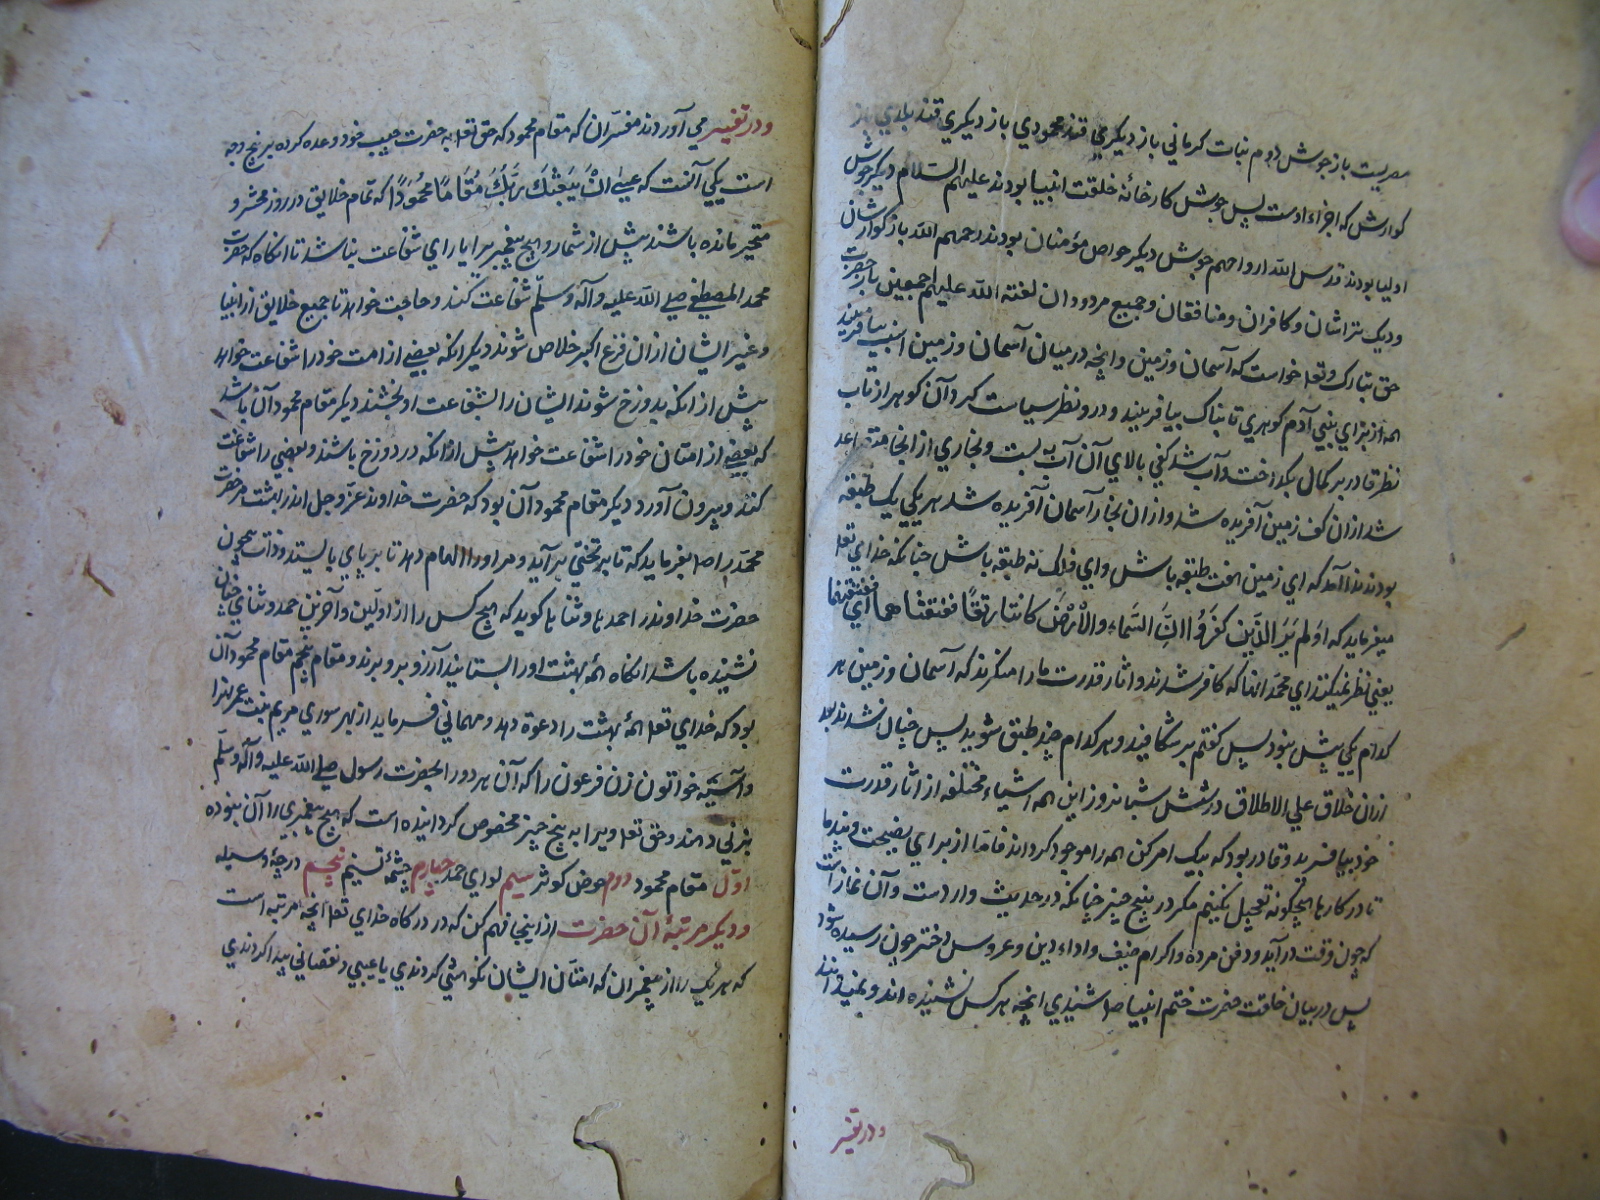 مصریست باز جوش دوم نبات کرمانی باز دیکری قند محمودی باز دیکری قند بلدی باز
کوارش که اجزاء اوست پس جوش کارخانه خلقت انبیا بودند علیهم السلام دیکر جوش
اولیا بودند قدس الله ارواحهم جوش دیکر خواص مؤمنان بودند رحمهم الله باز کوارشان
ودیک تراشان و کافران و منافقان و جمیع مردودان لعنته الله علیهم اجمعین باز حضرت
حق تبارک وتعلا خواست که آسمان و زمین وانچه در میان آسمان و زمین است بیافریند
همه از برای بنی آدم کوهری تابناک بیافرید و درو نظر سیاست کرد آن کوهر از تاب
نظر قادر بر کمال بکداخت و آب شد کفی بالای آن آب ببست و بخاری از انجا متصاعد
شد ازان کف زمین آفریده شد و ازان بخار آسمان آفریده شد هر یکی یک طبقه
بودند ندا آمد که ای زمین هفت طبقه باش و ای فلک نه طبقه باش چنانکه خدای تعلا
میفرماید که اَوَلَم یَرَ الَّذِینَ کَفَرُوا اَنَّ السَّمَاءَ وَالْاَرْضَ کانتا رتقًا ففتقناهما ای ففتقنهما
یعنی نظر نمیکنند ای محمد انها که کافر شدند و اثار قدرت ما را منکرند که آسمان و زمین هر
کدام یکی بیش نبود پس کفتم برشکافید و هر کدام چند طبق شوید پس چنان شدند بعد
ازان خلاق علی الاطلاق در شش شباندروز این همه اشیاء مختلفه از اثار قدرت
خود بیافرید و قادر بود که بیک امر کن همه را موجود کرداند فاما از برای نصیحت و پند ما
تا در کارها هیچکونه تعجیل نکنیم مکر در پنج چیز چنانکه در حدیث وارد است و آن نماز است
که چون وقت در آید و دفن مرده و اکرام ضیف و اداء دین و عروس دختر چون رسیده شود
پس در بیان خلقت حضرت ختم انبیا صلعم شنیدی انچه هر کس نشنیده اند و نمیدانند
و در تفسیر
و در تفسیر می آوردند مفسّران که مقام محمود که حق تعلا به حضرت حبیب خود وعده کرده بر پنج وجه
است یکی آنست که عَسٰی اَنْ یَبْعَثَکَ رَبُّکَ مَقَامًا مَحْمُودًا که تمام خلایق در روز محشر و
متحیر مانده باشند پیش از شمار و هیچ پیغمبر را یارای شفاعت نباشد تا انکاه که حضرت
محمد المصطفی صلی الله علیه وآله وسلّم شفاعت کند و حاجت خواهد تا جمیع خلایق از انبیا
و غیر ایشان ازان فزع اکبر خلاص شوند دیکر انکه بعضی از امت خود را شفاعت خواهد
پیش از انکه بدوزخ شوند ایشان را بشفاعت او بخشند دیکر مقام محمود آن باشد
که بعضی از امتان خود را شفاعت خواهد پیش ازانکه در دوزخ باشند و بعضی را شفاعت
کند و بیرون آورد دیکر مقام محمود آن بود که حضرت خداوند عزّ وجل اندر بهشت مر حضرت
محمّد را صلعم بفرماید که تا بر تختی بر آید و مر او را الهام دهد تا بر پای بایستد و ذات بیچون
حضرت خداوند را حمدها و ثناها کوید که هیچ کس را از اولین و آخرین حمد و ثنای چنان
نشنیده باشد انکاه همهٔ بهشت او را بستایند آرزو برو برند و مقام پنجم مقام محمود آن
بود که خدای تعلا همهٔ بهشت را دعوة دهد و مهمانی فرماید از بهر سوری مریم بنت عمران را
و آسیّه خواتون زن فرعون را که آن هر دو را بحضرت رسول صلی الله علیه وآله وسلّم
بزنی دهند و حق تعلا ویرا به پنج چیز مخصوص کردانیده است که هیچ پیغمبری را آن نبوده
اوّل مقام محمود دوم حوض کوثر سیم لوای حمد چهارم چشمهٔ تسنیم پنجم درجهٔ وسیله
و دیکر مرتبهٔ آن حضرت از اینجا فهم کن که در درکاه خدای تعلا انچه مرتبه است
که هر یک را از پیغمبران که امتان ایشان نکوهشی کردندی یا عیبی و نقصانی پیدا کردندی